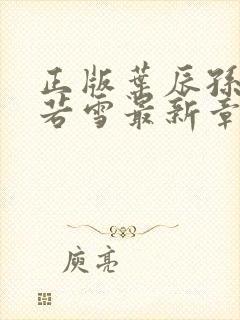 正版叶辰孙
若雪最新章
庾亮